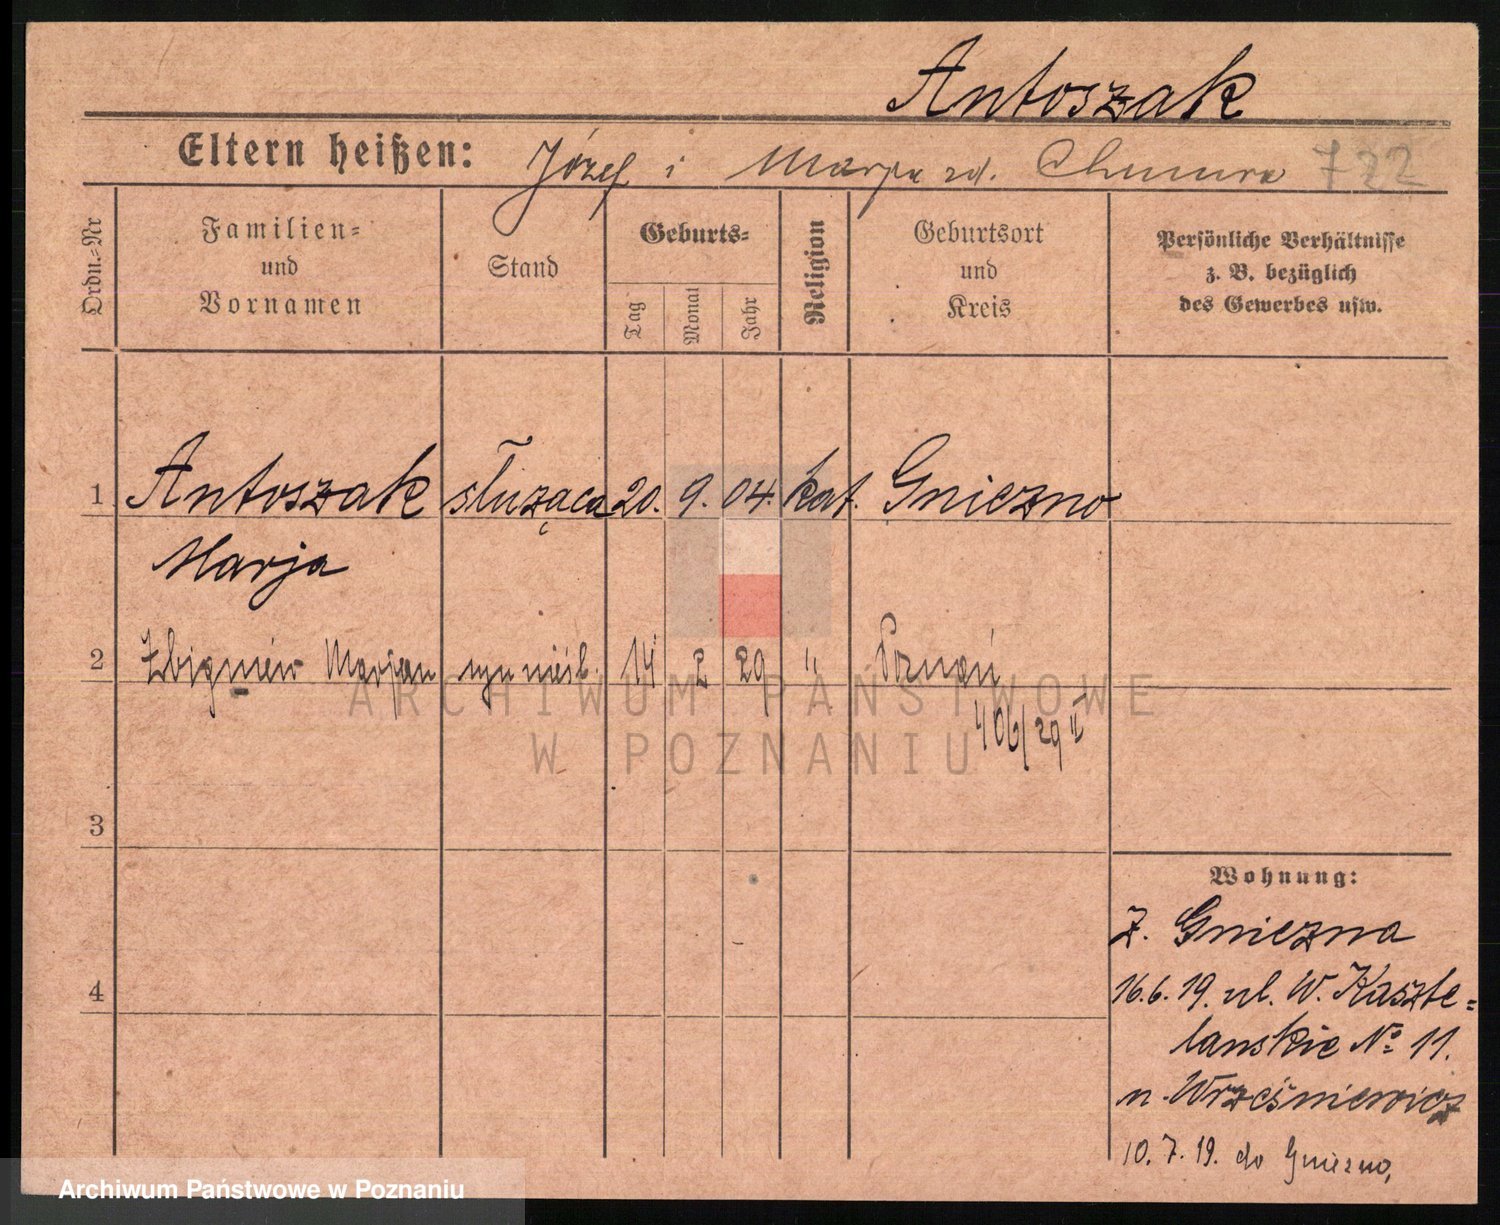 Antoszak
Eltern heißen: Józef i Marja zd. Chmura 722
Ordn.-Nr
Familien-
und
Vornamen
Stand
Geburts-
Tag
Monat
Jahr
Religion
Geburtsort
und
Kreis
Persönliche Verhältnisse
z. B. bezüglich
des Gewerbes usw.
1 Antoszak służąca 20. 9. 04. kat. Gniezno
Marja
2 Zbigniew Marjan syn nieśl. 14 2 29 " Poznań
406/29 II
ARCHIWUM PAŃSTWOWE
W POZNANIU
3
4
Wohnung:
Z. Gniezna
16.6.19. ul. W. Kaszte=
lanskie No 11.
n. Wrześniewicz
10.7.19. do Gniezno,
Archiwum Państwowe w Poznaniu